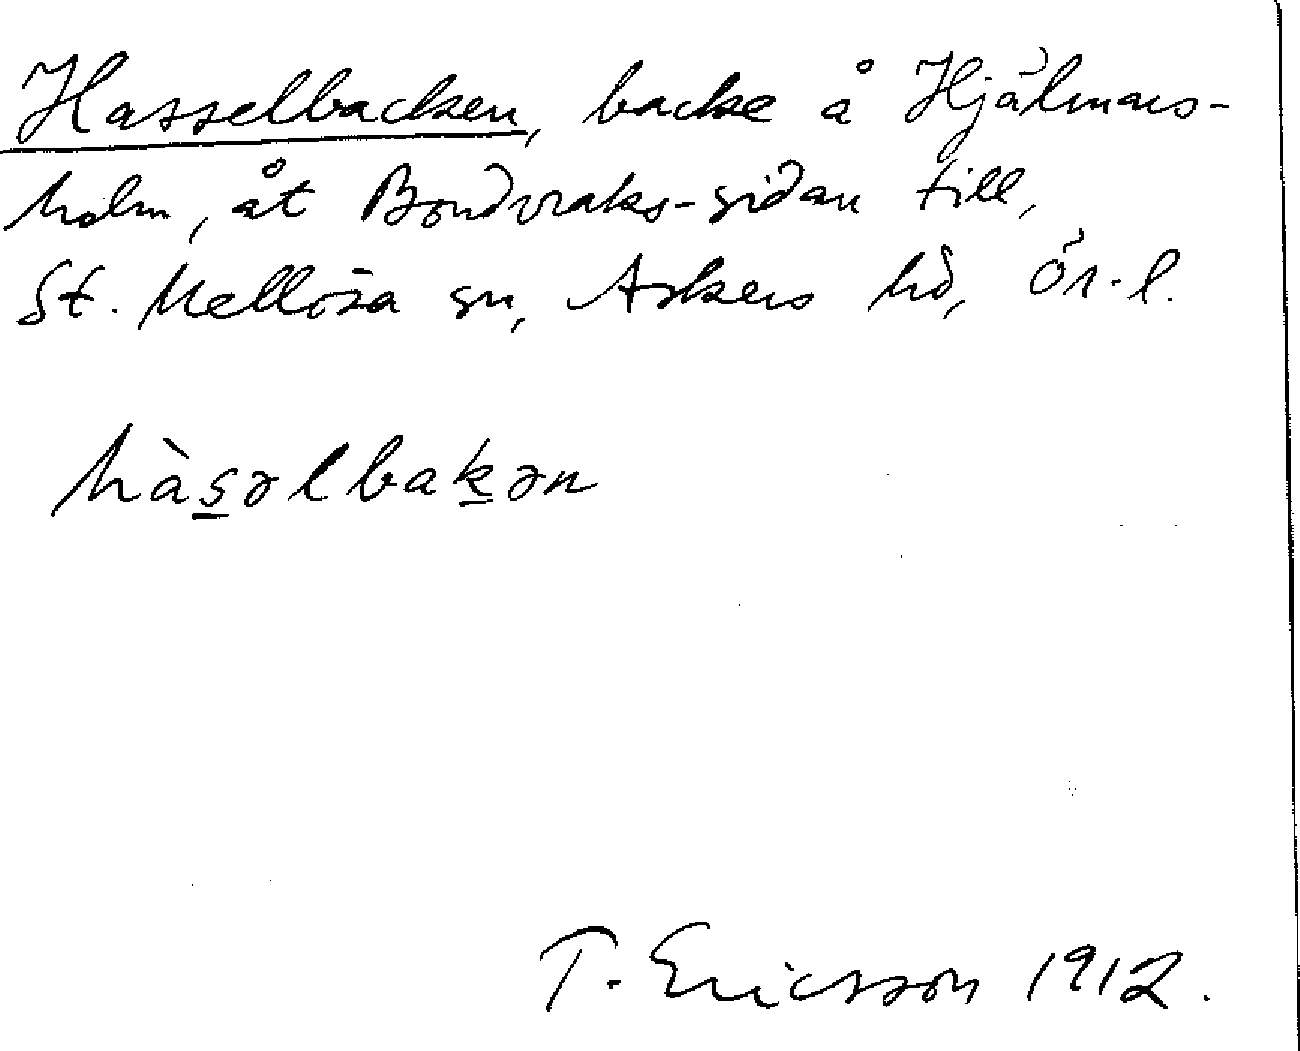 Hasselbacken, backe å Hjälmars-
holm, åt Bondvraks-sidan till,
St. Mellösa sn, Askers hd, Ör. l.
hàs̱əlbaḵən
T. Ericsson 1912.